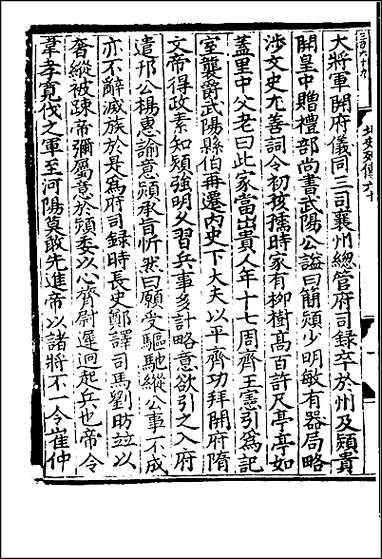 大將軍開府儀同三司襄州總管府司録卒於州及熲貴
開皇中贈禮部尚書武陽公謚曰簡熲少明敏有器局略
涉文史尤善詞令初孩孺時家有柳樹髙百許尺亭亭如
蓋里中父老曰此家當出貴人年十七周齊王憲引爲記
室襲爵武陽縣伯再遷内史下大夫以平齊功拜開府隋
文帝得政素知熲強明久習兵事多計略意欲引之入府
遣邦公楊惠諭意熲承旨忻然曰願受驅馳縱公事不成
亦不辭滅族於是爲府司録時長史鄭譯司馬劉昉竝以
奢縱被疎帝彌屬意於熲委以心齊尉遲迥起兵也帝令
韋孝寬伐之軍至河陽莫敢先進帝以諸將不一令崔仲